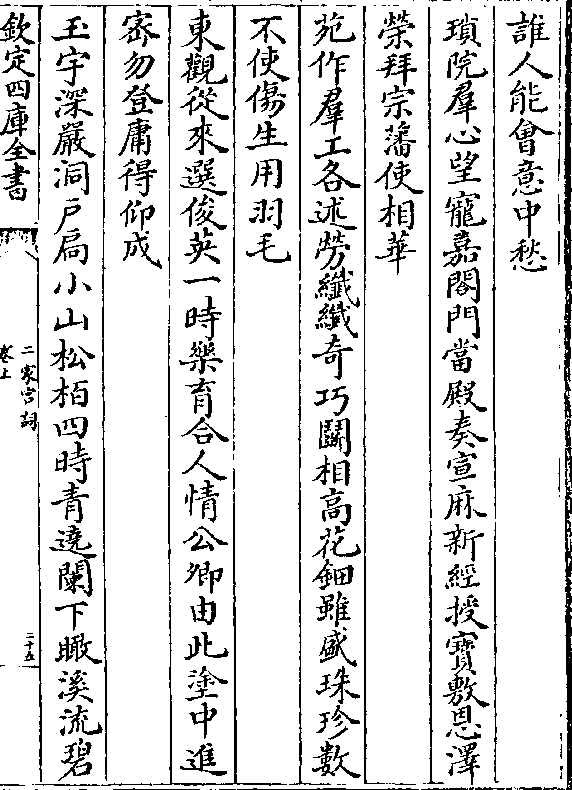 誰人能會意中愁
瑣院羣心望寵嘉閤門當殿奏宣麻新經授寶敷恩澤
榮拜宗藩使相華
苑作羣工各述勞纖纖奇巧鬬相高花鈿雖盛珠珍數
不使傷生用羽毛
東觀從來選俊英一時樂育合人情公卿由此塗中進
寄勿登庸得仰成
玉宇深嚴洞戶扃小山松栢四時青遶闌下瞰溪流碧
欽定四庫全書
二家宮詞
卷上
二十五